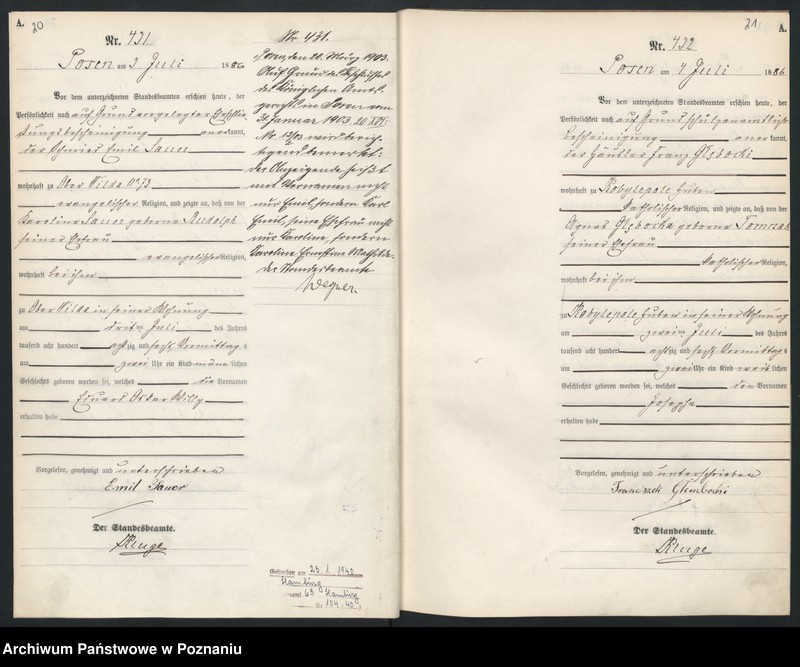 A.
20
Nr. 431
Posen am 3 Juli 1886
Vor dem unterzeichneten Standesbeamten erschien heute, der
Persönlichkeit nach auf Grund vorgelegter Eheschlie-
ßungsbescheinigung anerkannt,
der Schmied Emil Sauer
wohnhaft zu Ober Wilda No 73
evangelischer Religion, und zeigte an, daß von der
Karoline Sauer geborne Rudolph
seiner Ehefrau
evangelischer Religion,
wohnhaft bei ihm
zu Ober Wilda in seiner Wohnung
am dritten Juli des Jahres
tausend acht hundert achtzig und sechs Vormittags
um zwei Uhr ein Kind männlichen
Geschlechts geboren worden sei, welches die Vornamen
Eduard Oskar Willy
erhalten habe
Vorgelesen, genehmigt und unterschrieben
Emil Sauer
Der Standesbeamte.
Kluge
Nr 431.
Posen, den 20. März 1903.
Auf Grund des Beschlusses
des Königlichen Amts-
gerichts in Posen vom
31 Januar 1903
wird berich-
tigend bemerkt:
der Anzeigende heißt
mit Vornamen nicht
nur Emil, sondern Carl
Emil, seine Ehefrau nicht
nur Karoline, sondern
Karoline Ernestine Mathilde.
Der Standesbeamte
Wegner.
Gestorben am 23.1.1942
Hamburg
Hamburg
Nr. 104.40
21.
A.
Nr. 432
Posen am 4 Juli 1886
Vor dem unterzeichneten Standesbeamten erschien heute, der
Persönlichkeit nach auf Grund schulzenamtlicher
Bescheinigung anerkannt,
der Händler Franz Głębocki
wohnhaft zu Kobylepole Huben
katholischer Religion, und zeigte an, daß von der
Agnes Głębocka geborne Tomczak
seiner Ehefrau
katholischer Religion,
wohnhaft bei ihm
zu Kobylepole Huben in seiner Wohnung
am zweiten Juli des Jahres
tausend acht hundert achtzig und sechs Vormittags
um zwei Uhr ein Kind weiblichen
Geschlechts geboren worden sei, welches den Vornamen
Josepha
erhalten habe
Vorgelesen, genehmigt und unterschrieben
Franciszek Glembocki
Der Standesbeamte.
Kluge
Archiwum Państwowe w Poznaniu